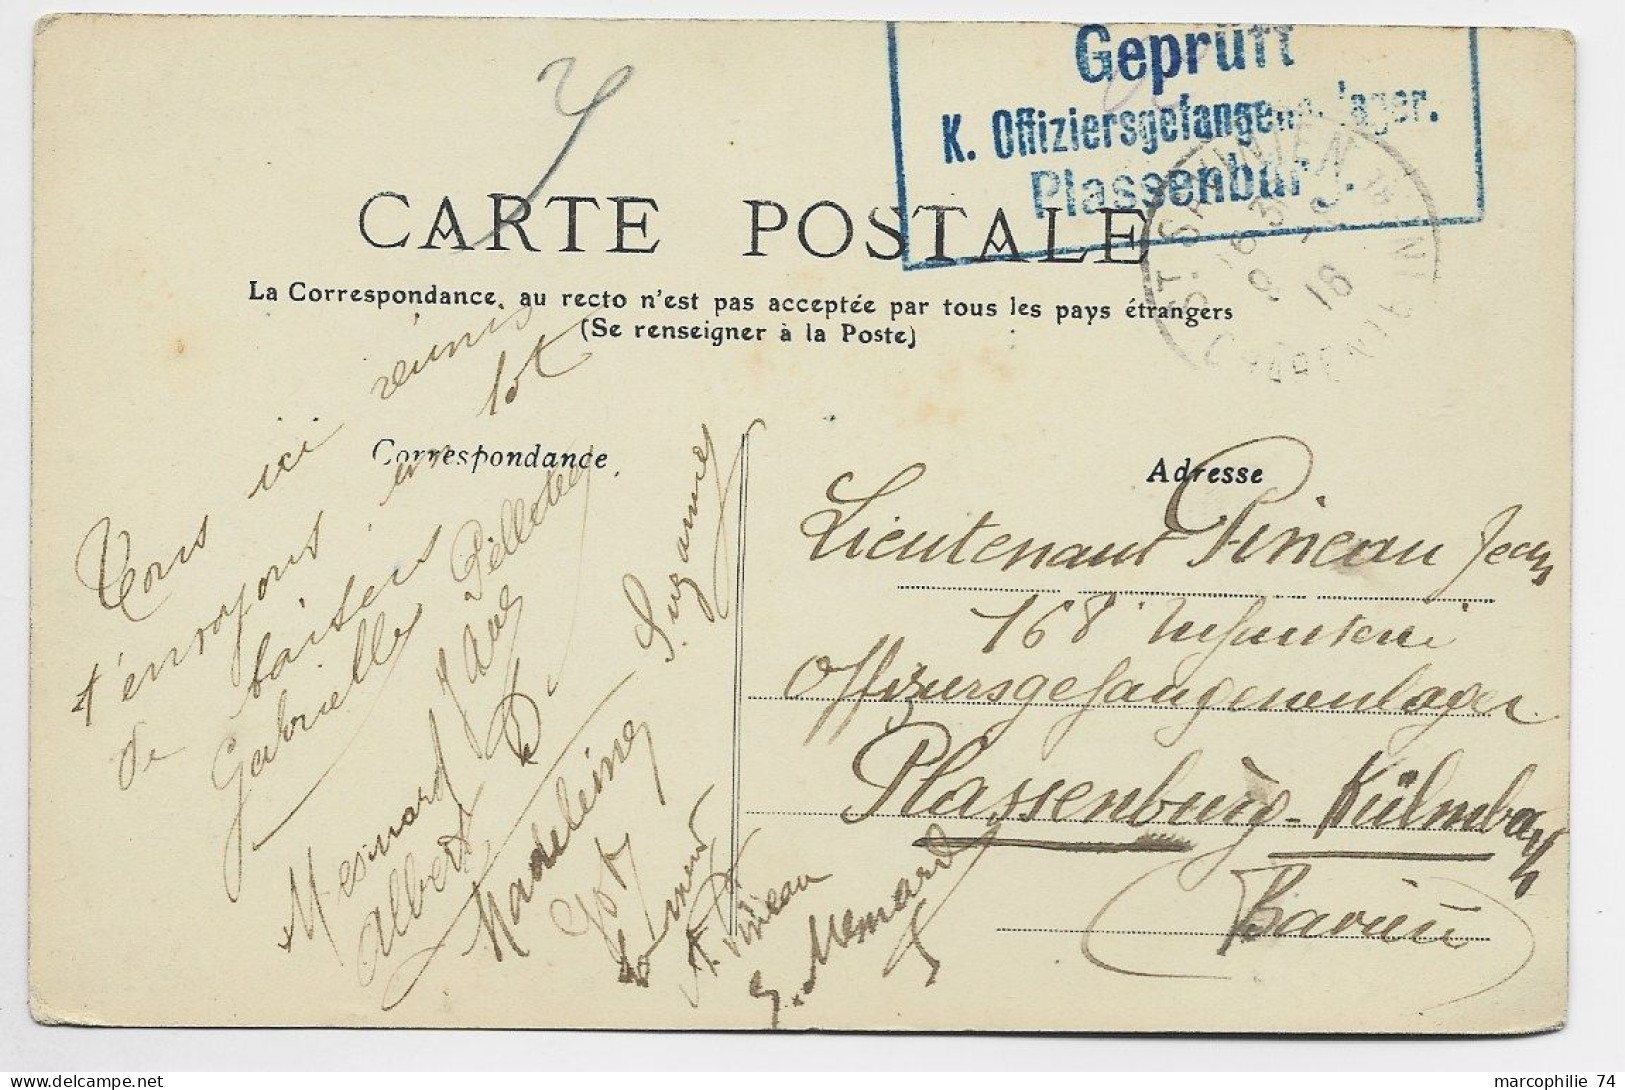 Geprüft
K. Offiziersgefangenenlager.
Plassenburg.
ST SAVINIEN
16 30
9 - 9
16
CHARENTE INF
CARTE POSTALE
La Correspondance, au recto n'est pas acceptée par tous les pays étrangers
(Se renseigner à la Poste)
Correspondance
Adresse
Tous ici réunis
t'envoyons un lot
de baisers
Gabrielle Pelletier
Mesnard
Albert
Madeleine
Suzanne
A. Pineau
G. Memard
Lieutenant Pineau Jean
168 Infanterie
Offiziersgefangenenlager
Plassenburg-Külmbach
Bavière
marcophilie 74